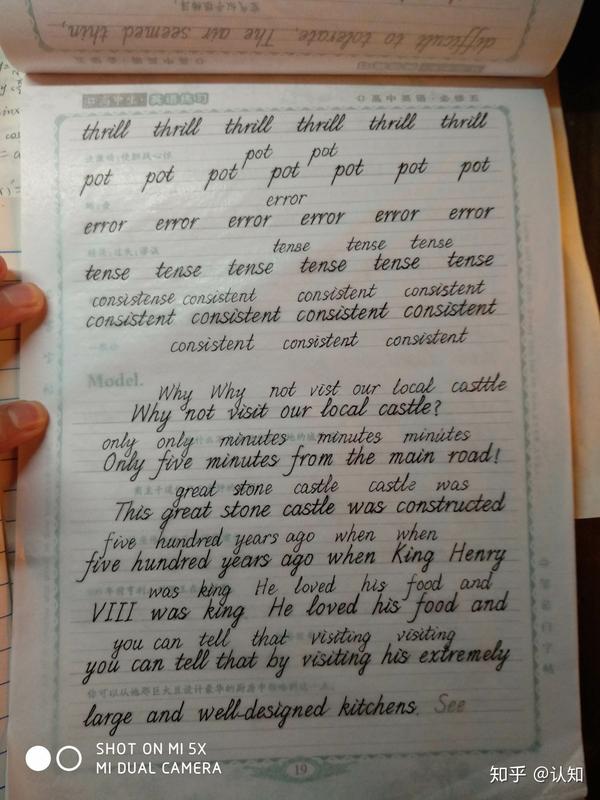 difficult to tolerate. The air seemed thin,
高中英语·必修五
thrill thrill thrill thrill thrill thrill
pot pot
pot pot pot pot pot pot pot
error
error error error error error error
tense tense tense
tense tense tense tense tense tense
consistense consistent consistent consistent
consistent consistent consistent consistent
consistent consistent consistent
Model.
Why Why not vist our local casttle
Why not visit our local castle?
only only minutes minutes minutes
Only five minutes from the main road!
great stone castle castle was
This great stone castle was constructed
five hundred years ago when when
five hundred years ago when King Henry
was king He loved his food and
VIII was king. He loved his food and
you can tell that visiting visiting
you can tell that by visiting his extremely
你可以从他那巨大且设计豪华的厨房中领略到这一点。
large and well-designed kitchens. See
19
SHOT ON MI 5X
MI DUAL CAMERA
知乎 @认知